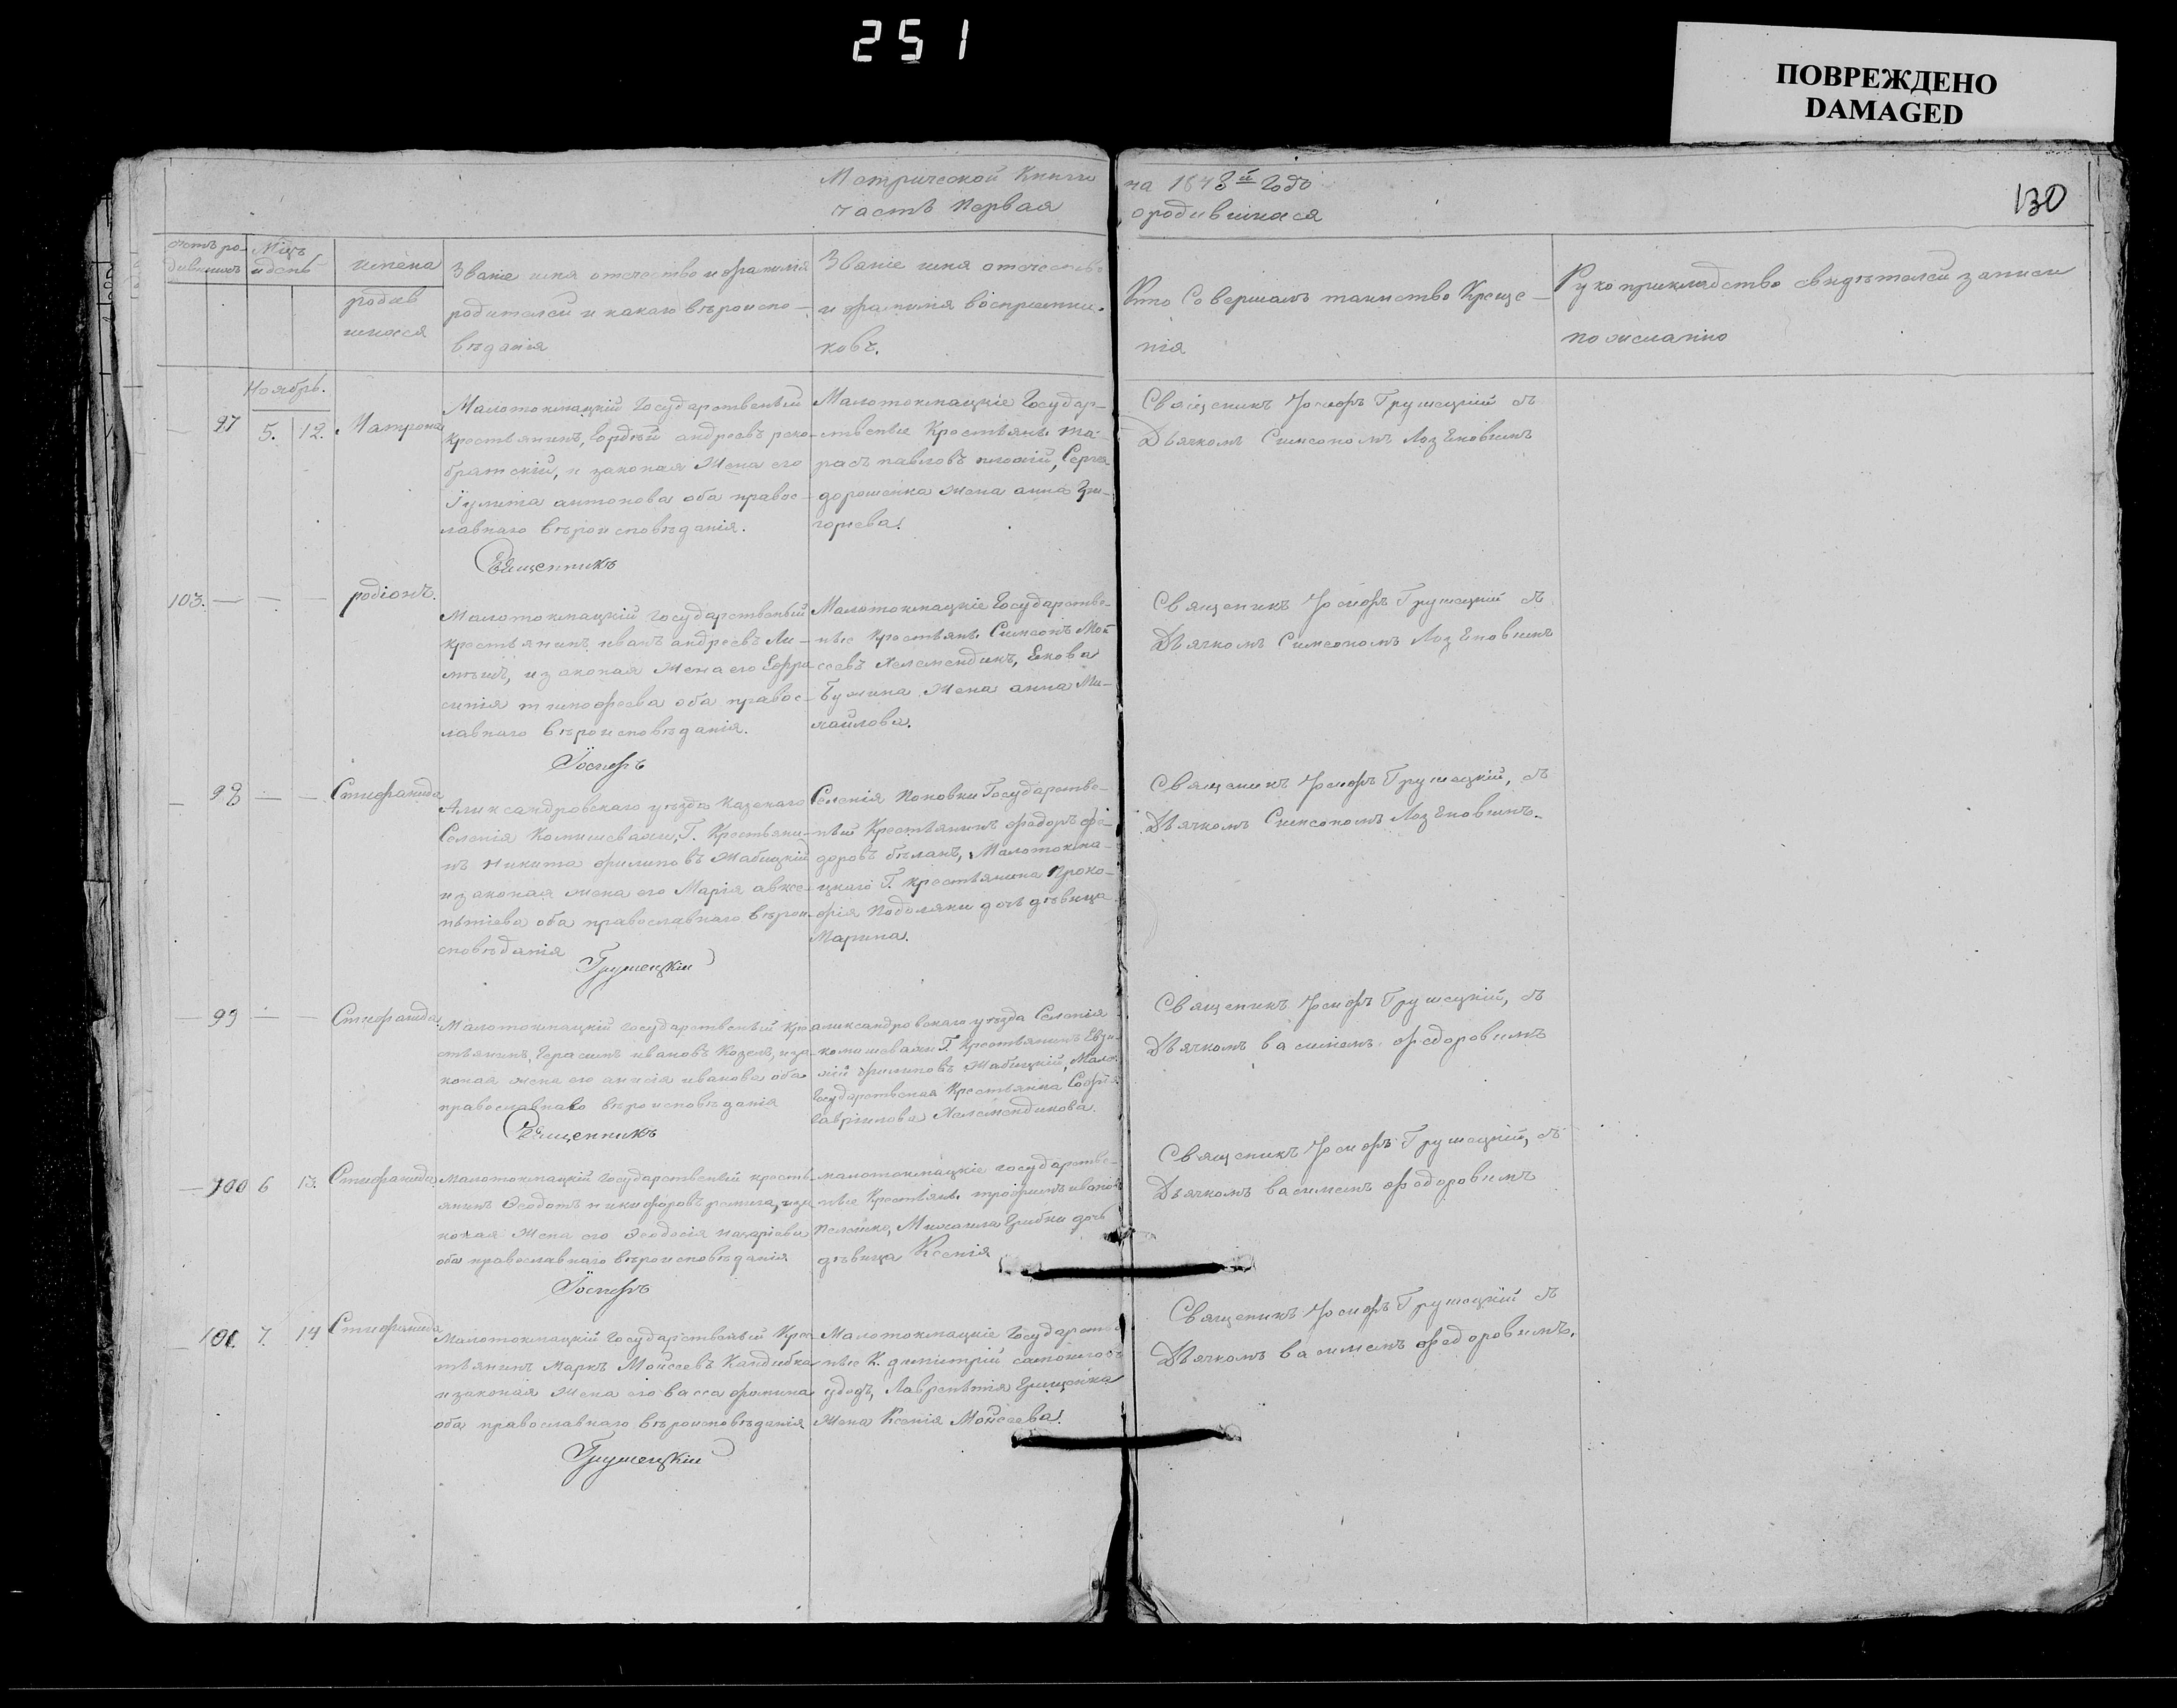 251
ПОВРЕЖДЕНО
DAMAGED
130
Метрической Книги на 1848й Годъ
часть Первая о родившихся
счетъ ро-
дившихся
Мцъ
и день
имена
родив
шихся
Званіе имя отечество и фамилія
родителей и какаго вѣроиспо-
вѣданія
Званіе имя отечество
и фамилія воспріемни-
ковъ.
Кто Совершалъ таинство Креще-
нія
Рукоприкладство свидѣтелей записи
по желанію
Ноябрь.
97 5. 12. Матрона
Малотокмацкій Государственый
крестьянинъ, Гордѣй андреевъ
братскій, и законая Жена его
Іулита антонова оба правос-
лавнаго вѣроисповѣданія.
Малотокмацкіе Государ-
ственые Крестьяне Та-
расъ павловъ, Сергея
дорошенка жена анна Гри-
горіева.
Священикъ Іосифъ Грушецкій съ
Дьячкомъ Симеономъ
Священникъ
103. — — — родіонъ.
Малотокмацкій Государственый
крестьянинъ, иванъ андреевъ
и законая Жена его Ефро
синія тимофеева оба правос-
лавнаго вѣроисповѣданія.
Малотокмацкіе Государстве-
ные Крестьяне Симеонъ Мой
сеевъ Желемендикъ, Якова
Жена анна Ми-
хайлова.
Священикъ Іосифъ Грушецкій съ
Дьячкомъ Симеономъ
Іосифъ
— 98 — — Стифанида
Александровскаго уѣзда Казенаго
Селенія Комишевахи, Г. Крестьяни-
нъ Никита филиповъ Жабицкій
и законая жена его Марія авксе-
нтіева оба православнаго вѣрои-
сповѣданія
Селенія Поповки Государстве-
ный Крестьянинъ федоръ фе-
доровъ бѣланъ, Малотокма-
цкаго Г. крестьянина Проко-
фія Подоляки дочь дѣвица
Марина.
Священикъ Іосифъ Грушецкій, съ
Дьячкомъ Симеономъ
Грушецкій
— 99 — — Стифанида
Малотокмацкій Государственый Кре
стьянинъ, Герасимъ ивановъ Козелъ, и за
коная жена его анисія иванова оба
православнаго вѣроисповѣданія
александровскаго уѣзда Селенія
комишевахи Г. Крестьянинъ
филиповъ Жабицкій, Мало.
Государственая Крестьянка Софія
Гаврилова Желемендикова.
Священикъ Іосифъ Грушецкій, съ
Дьячкомъ василіемъ федоровимъ
Священникъ
— 100 6 13. Стифанида
Малотокмацкій Государственый кресть
янинъ Феодотъ никифоровъ, и за
коная Жена его Феодосія назаріева
оба православнаго вѣроисповѣданія
малотокмацкіе государстве-
ные Крестьяне трофимъ ивановъ
Михаила Грибки дочь
дѣвица Ксенія
Священикъ Іосифъ Грушецкій, съ
Дьячкомъ василіемъ федоровимъ
Іосифъ
101. 7. 14 Стифанида
Малотокмацкій Государственый Кре-
стьянинъ Маркъ Моисеевъ Кандибка
и законая жена его васса фомина
оба православнаго вѣроисповѣданія
Малотокмацкіе Государств
ные К. димитрій
удодъ, Лаврентія Грищенка
жена Ксенія Мойсеева.
Священикъ Іосифъ Грушецкій съ
Дьячкомъ василіемъ федоровимъ.
Грушецкій